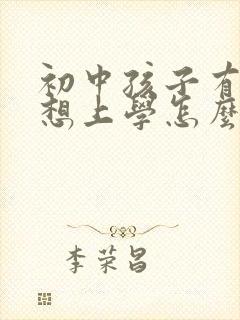 初中孩子有
想上學怎麼
李荣昌